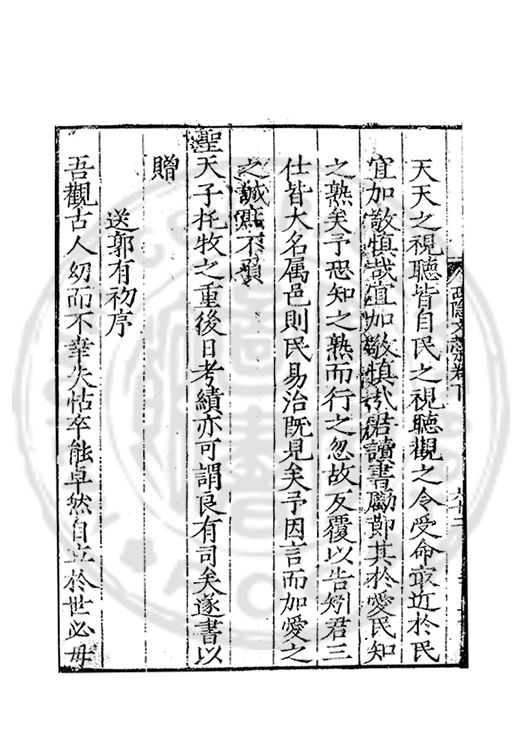 天天之視聽皆自民之視聽觀之令受命最近於民
宜加敬慎哉宜加敬慎哉君讀書勵節其於愛民知
之熟矣予恐知之熟而行之忽故反覆以告矧君三
仕皆大名属邑則民易治既見矣予因言而加愛之
之誠庶不負
聖天子托牧之重後日考績亦可謂良有司矣遂書以
贈
送郭有初序
吾觀古人幼而不幸失怙卒能卓然自立於世必毋